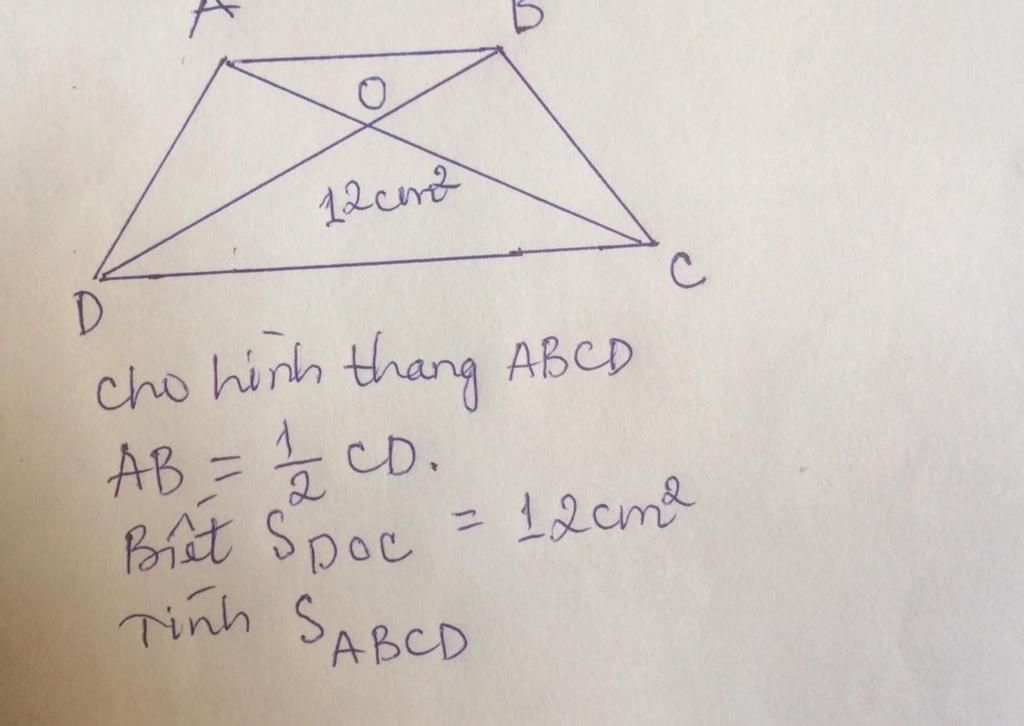 A B
O
12cm²
D C
Cho hình thang ABCD
AB = 1/2 CD.
Biết S_DOC = 12cm²
Tính S_ABCD